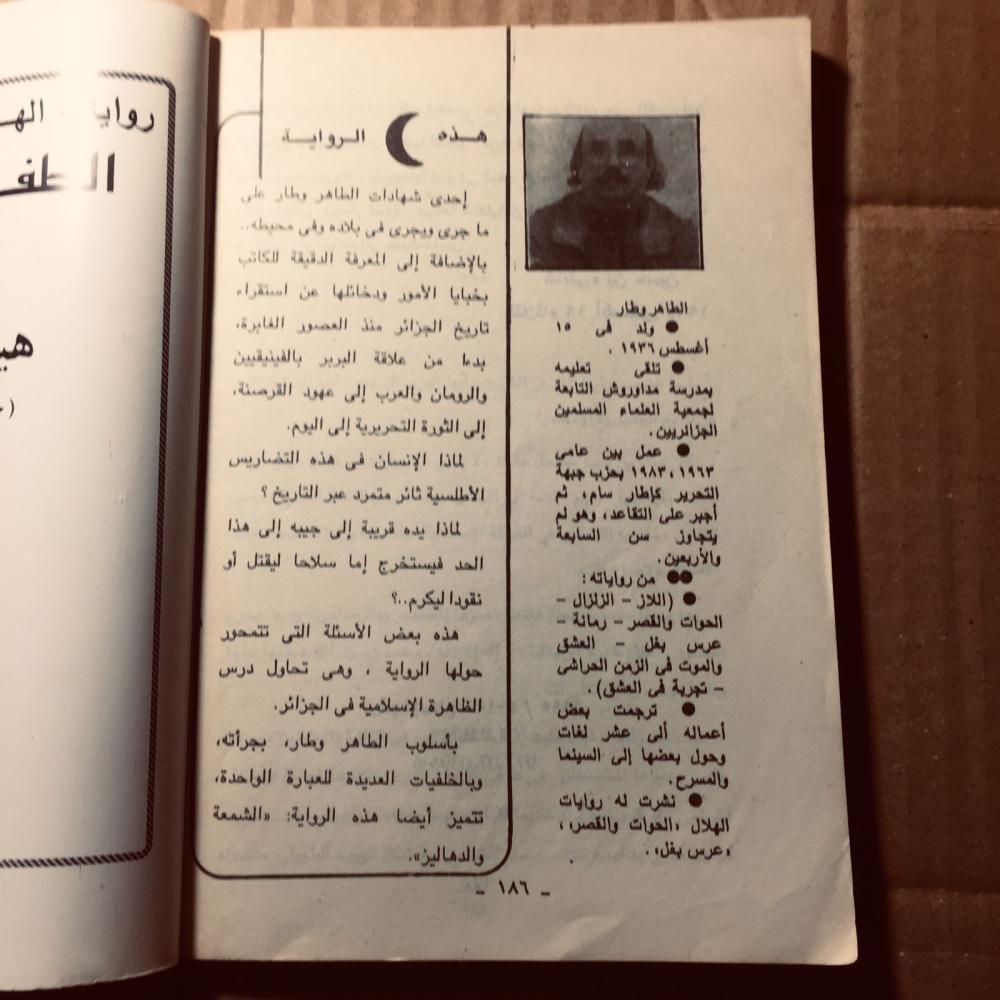 هذه الرواية
إحدى شهادات الطاهر وطار على
ما جرى ويجرى فى بلاده وفى محيطه..
بالإضافة إلى المعرفة الدقيقة للكاتب
بخبايا الأمور ودخائلها عن استقراء
تاريخ الجزائر منذ العصور الغابرة،
بدءا من علاقة البربر بالفينيقيين
والرومان والعرب إلى عهود القرصنة،
إلى الثورة التحريرية إلى اليوم.
لماذا الإنسان فى هذه التضاريس
الأطلسية ثائر متمرد عبر التاريخ ؟
لماذا يده قريبة إلى جيبه إلى هذا
الحد فيستخرج إما سلاحا ليقتل أو
نقودا ليكرم..؟
هذه بعض الأسئلة التى تتمحور
حولها الرواية ، وهى تحاول درس
الظاهرة الإسلامية فى الجزائر.
بأسلوب الطاهر وطار، بجرأته،
وبالخلفيات العديدة للعبارة الواحدة،
تتميز أيضا هذه الرواية: «الشمعة
والدهاليز».
الطاهر وطار
● ولد فى ١٥
أغسطس ١٩٣٦ .
● تلقى تعليمه
بمدرسة مداوروش التابعة
لجمعية العلماء المسلمين
الجزائريين.
● عمل بين عامى
١٩٦٣ ، ١٩٨٣ بحزب جبهة
التحرير كإطار سام، ثم
أجبر على التقاعد، وهو لم
يتجاوز سن السابعة
والأربعين.
●● من رواياته :
● (اللاز – الزلزال –
الحوات والقصر – رمانة –
عرس بغل – العشق
والموت فى الزمن الحراشى
– تجربة فى العشق).
● ترجمت بعض
أعماله ألى عشر لغات
وحول بعضها إلى السينما
والمسرح.
● نشرت له روايات
الهلال «الحوات والقصر»،
«عرس بغل».
– ١٨٦ –